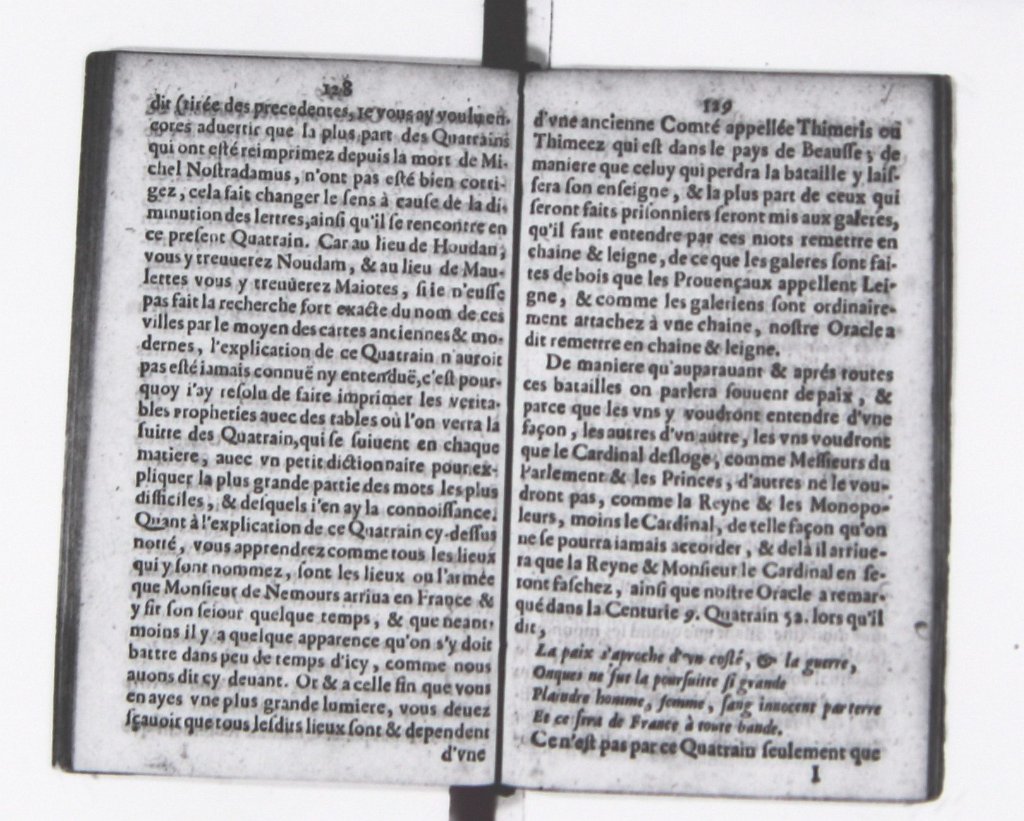 128
dit (tirée des precedentes, ie vous ay voulu en-
cores aduertir que la plus part des Quatrains
qui ont esté reimprimez depuis la mort de Mi-
chel Nostradamus, n'ont pas esté bien corri-
gez, cela fait changer le sens à cause de la di-
minution des lettres, ainsi qu'il se rencontre en
ce present Quatrain. Car au lieu de Houdan,
vous y treuuerez Noudam, & au lieu de Mau-
lettes vous y treuuerez Maiotes, si ie n'eusse
pas fait la recherche fort exacte du nom de ces
villes par le moyen des cartes anciennes & mo-
dernes, l'explication de ce Quatrain n'auroit
pas esté iamais connuë ny entenduë, c'est pour-
quoy i'ay resolu de faire imprimer les verita-
bles Propheties auec des tables où l'on verra la
suitte des Quatrain, qui se suiuent en chaque
matiere, auec vn petit dictionnaire pour ex-
pliquer la plus grande partie des mots les plus
difficiles, & desquels i'en ay la connoissance.
Quant à l'explication de ce Quatrain cy-dessus
notté, vous apprendrez comme tous les lieux
qui y sont nommez, sont les lieux ou l'armée
que Monsieur de Nemours arriua en France &
y fit son seiour quelque temps, & que neant-
moins il y a quelque apparence qu'on s'y doit
battre dans peu de temps d'icy, comme nous
auons dit cy deuant. Or & a celle fin que vous
en ayes vne plus grande lumiere, vous deuez
sçauoir que tous lesdits lieux sont & dependent
d'vne
129
d'vne ancienne Comté appellée Thimeris ou
Thimeez qui est dans le pays de Beausse; de
maniere que celuy qui perdra la bataille y lais-
sera son enseigne, & la plus part de ceux qui
seront faits prisonniers seront mis aux galeres,
qu'il faut entendre par ces mots remettre en
chaine & leigne, de ce que les galeres sont fai-
tes de bois que les Prouençaux appellent Lei-
gne, & comme les galeriens sont ordinaire-
ment attachez à vne chaine, nostre Oracle a
dit remettre en chaine & leigne.
De maniere qu'auparauant & aprés toutes
ces batailles on parlera souuent de paix, &
parce que les vns y voudront entendre d'vne
façon, les autres d'vn autre, les vns voudront
que le Cardinal desloge, comme Messieurs du
Parlement & les Princes, d'autres ne le vou-
dront pas, comme la Reyne & les Monopo-
leurs, moins le Cardinal, de telle façon qu'on
ne se pourra iamais accorder, & delà il arriue-
ra que la Reyne & Monsieur le Cardinal en se-
ront faschez, ainsi que nostre Oracle a remar-
qué dans la Centurie 9. Quatrain 52. lors qu'il
dit,
La paix s'aproche d'vn costé, & la guerre,
Onques ne fut la poursuitte si grande
Plaindre homme, femme, sang innocent par terre
Et ce sera de France à toute bande.
Ce n'est pas par ce Quatrain seulement que
I